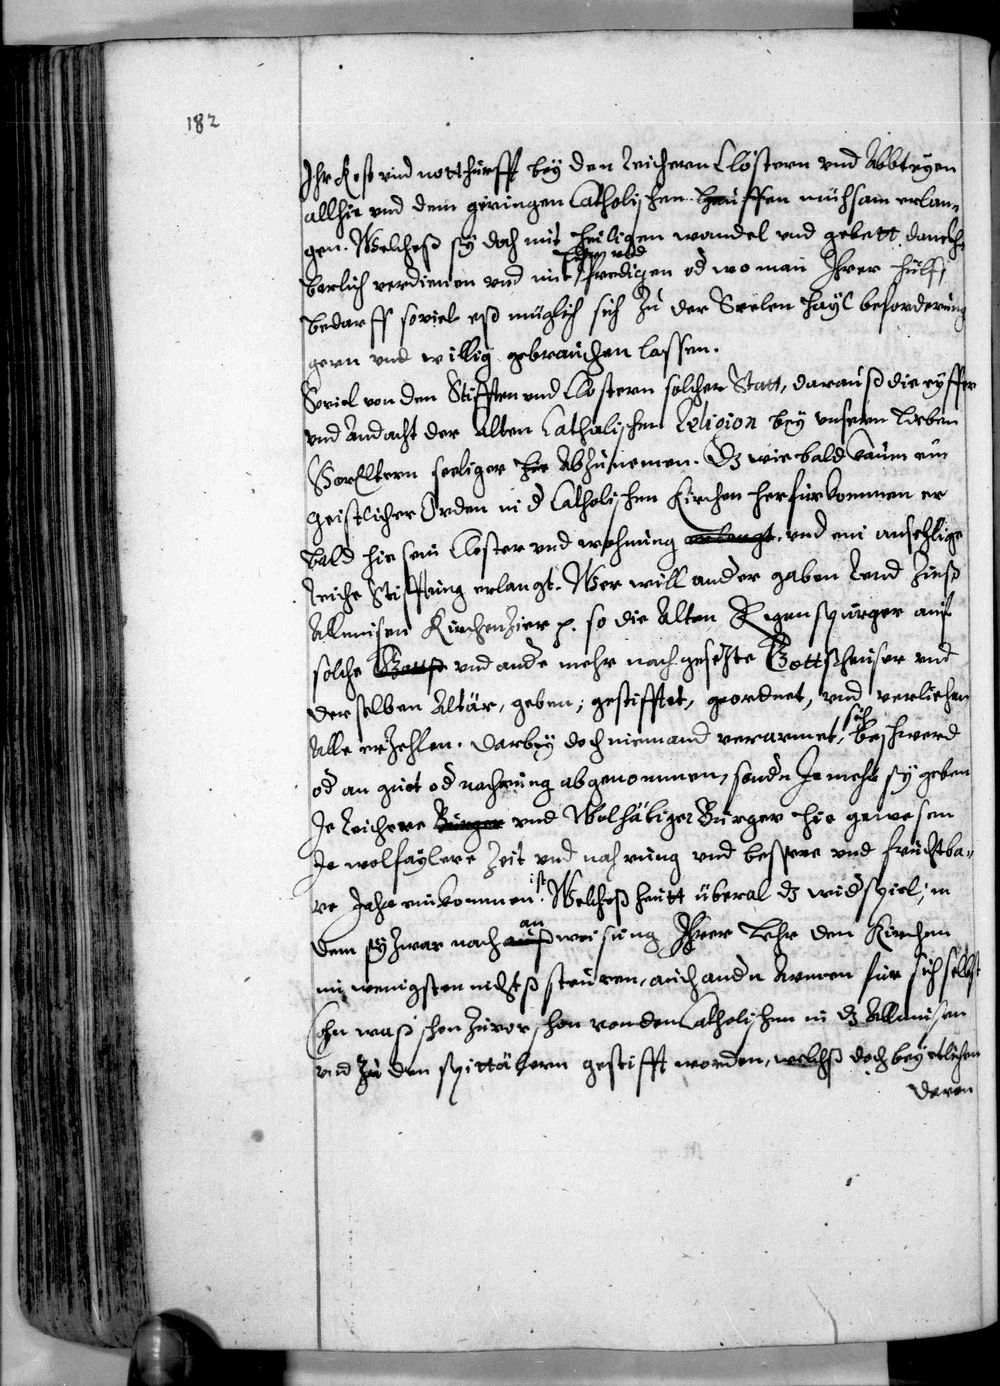 182
Ihr Kost und notthurfft bey den reichern Clöstern und Abbteyen
allhie und dem geringen Catholischen hauffen mühsam erlan-
gen. Welcheß sy doch mit heiligen wandel und gebett, danckh-
barlich verdienen und mit predigen od wo man Ihrer hülff
bedarff soviel eß müglich sich zu der Seelen hayl beforderung
gern und willig gebrauchen lassen.
Soviel von den Stifften und Clostern solcher Statt, darauß die eyffer
und Andacht der Alten Catholischen Religion bey unsern lieben
VorEltern seeliger hie Abzunemen. Dz wie bald kaum ein
geistlicher Orden in d Catholischen Kirchen herfürkommen er
bald hie sein Closter und wohnung erlangt, und ein ansehlige
reiche Stifftung erlangt. Wer will ander gaben Rend Zinß
Allmusen KirchenZier p. so die Alten Regenspurger auf
solche und ande mehr nachgesetzte Gottsheuser und
derselben Altär, geben, gestifftet, geordnet, und verliehen
Alle erzehlen. Darbey doch niemand verarmet, sich beschwerd
od an guet od nachrung abgenommen, sondn Ja mehr sy geben
Je reichere Burger und Wolhäbiger Burger hie gewesen
Je wolfaylere Zeit und nahrung und bessere und fruchtba-
re Jahr einkommen ist. Welcheß heutt überal dz widspiel, in
dem sy zwar nach außan weisung Ihrer Lehr den Kirchen
im wenigsten nichtß steuren, auch andn Armen für sich selbst
Ohn waß schon zuvor schon von den Catholischen in dz Allmusen
und zu den spittälern gestifft worden, welchß doch bey etlichen
daran